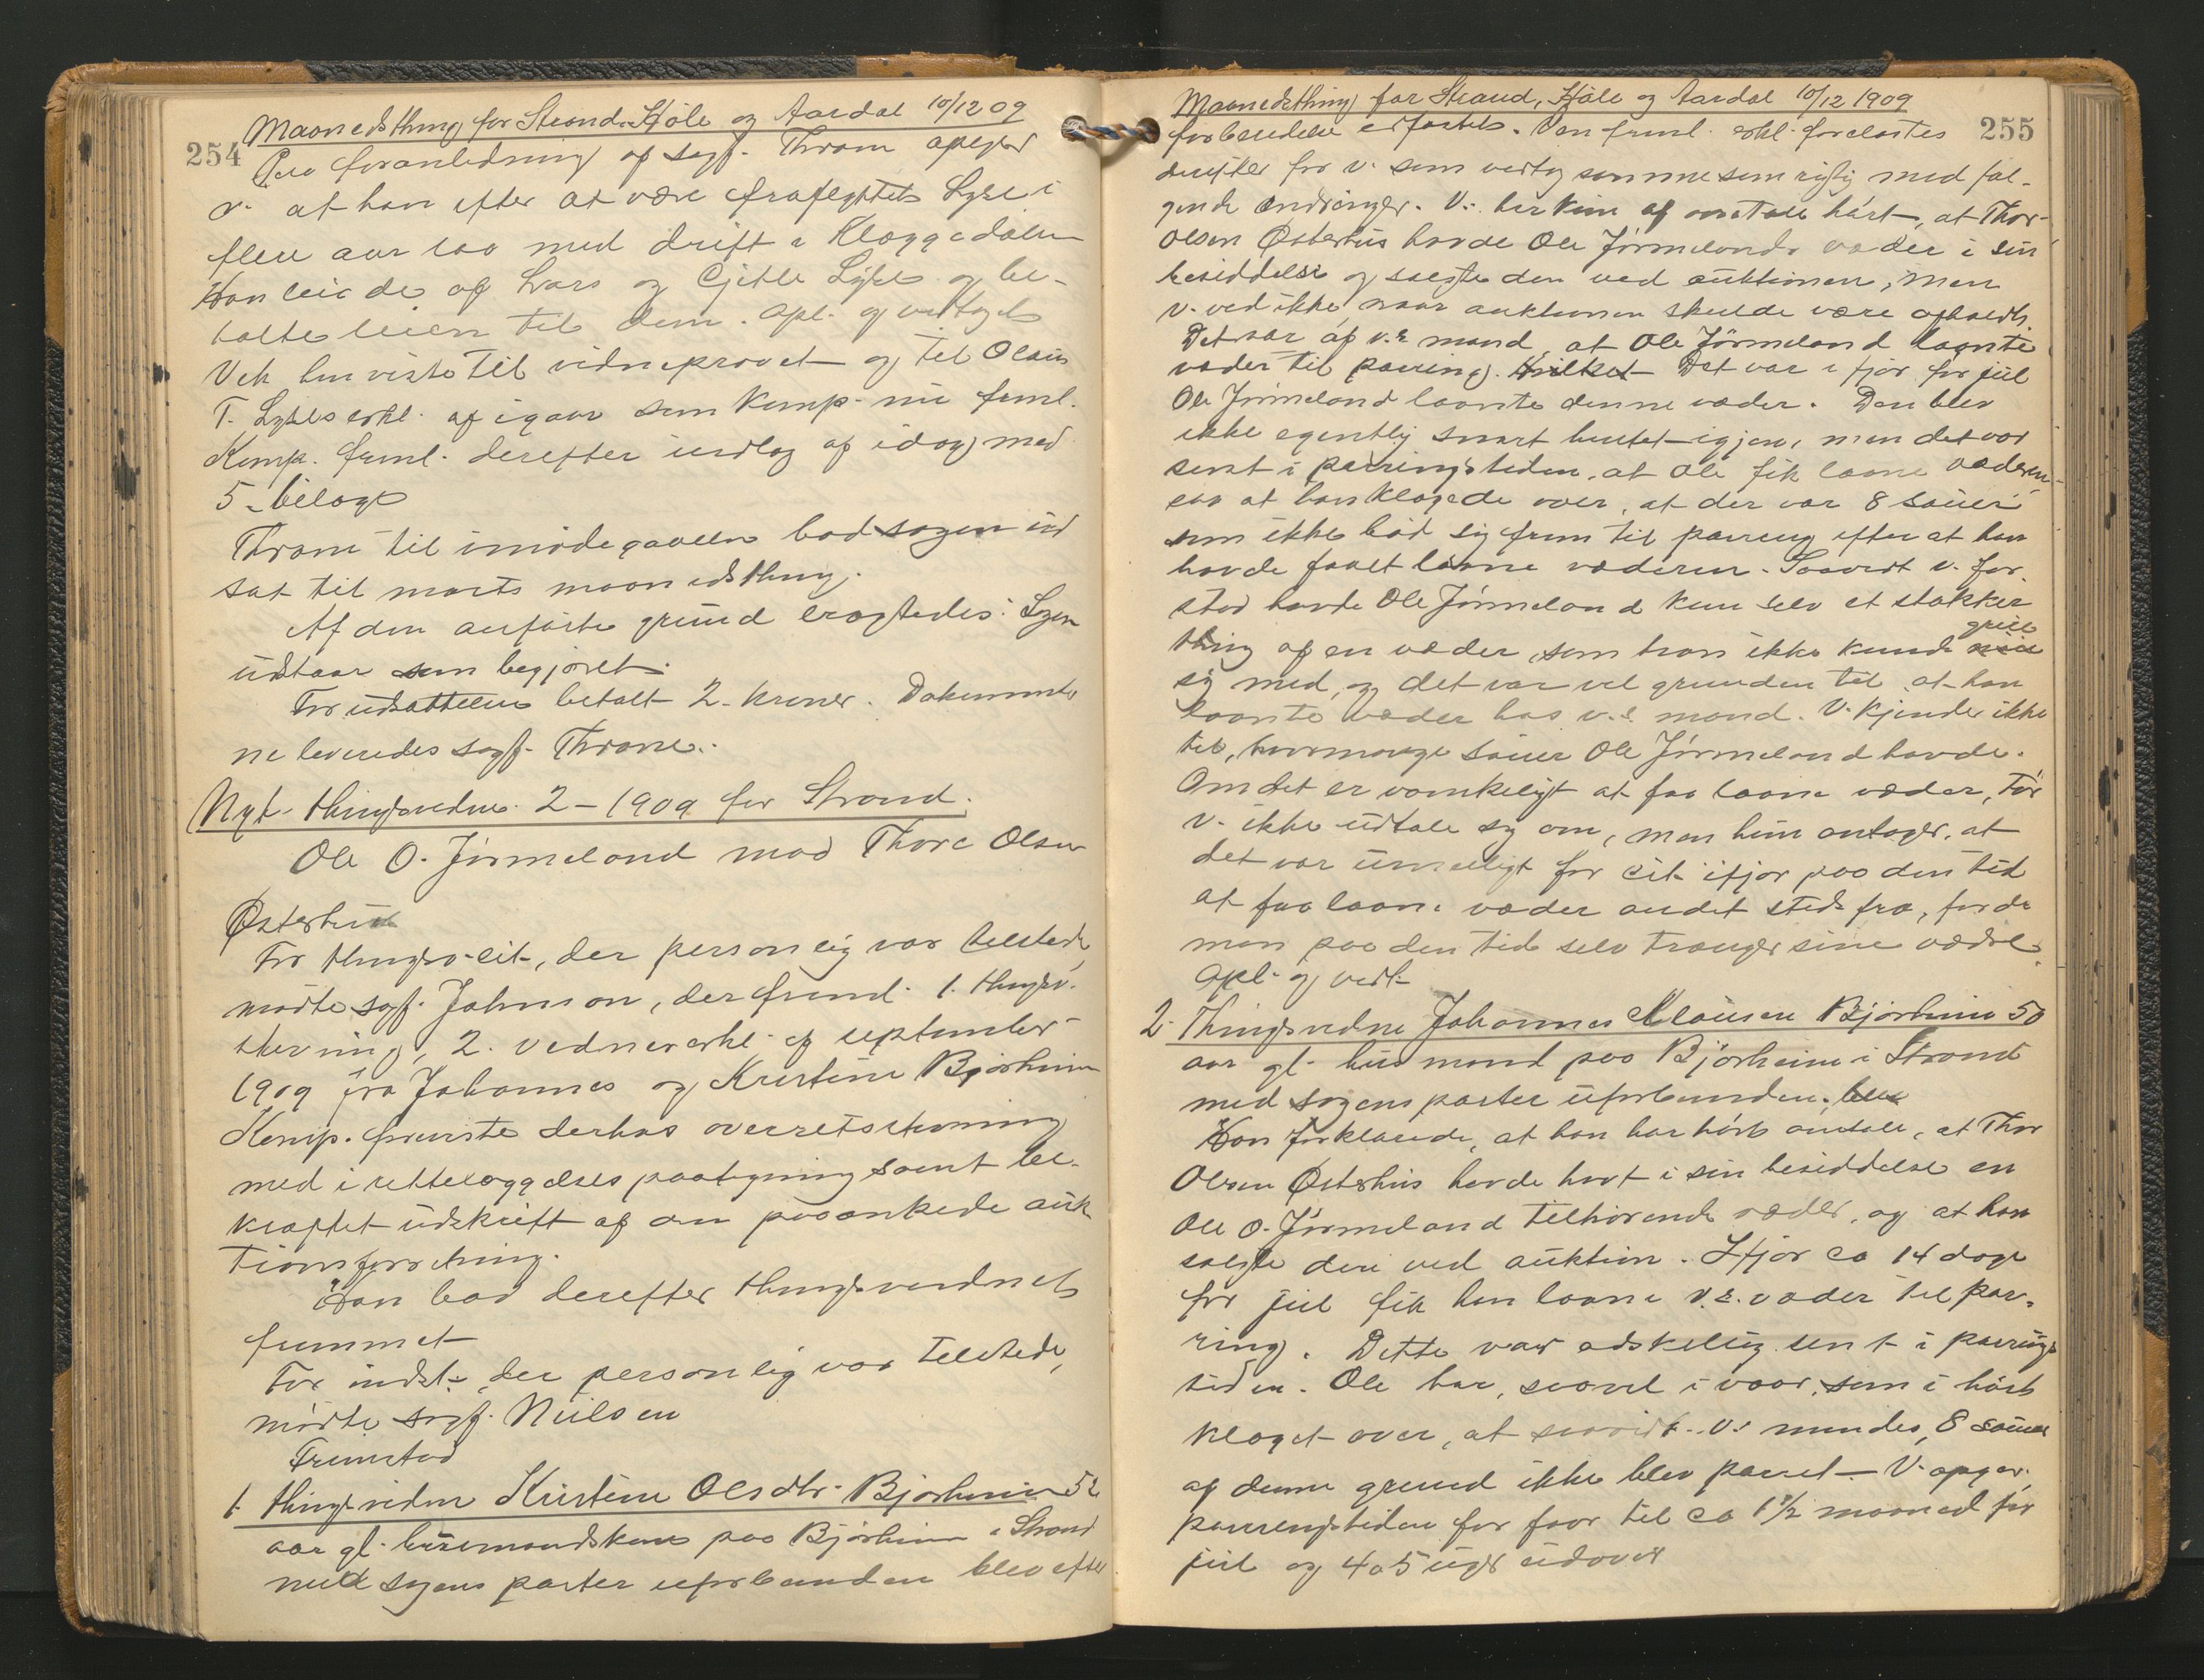 254
Maanedsthing for Strand, Høle og Aardal 10/12 09
Paa foranledning af sagf. Thrane opgiver
v. at han efter at være fraflyttet Lyse i
flere aar laa med drift i Kloggedalen
Han leiede af Lars og Gjetle Lyse og be-
talte leien til dem. Opl. og vedtaget
Vek henviste til vidneprovet og til Olaus
T. Lyses erkl. af igaar som komp. nu freml.
Komp. freml. derefter indlæg af idag med
5 bilage
Thrane til imødegaaelse bad sagen ud
sat til marts maanedsthing.
Af den anførte grund eragtedes: Sagen
udstaar som begjæret.
For udsættelsen betalt 2 kroner. Dokumenter
ne leveredes sagf. Thrane.
Nyt thingsvidne 2 - 1909 for Strand.
Ole O. Jørmeland mod Thore Olsen
Østerhus
For thingsv. cit., der personlig var tilstede,
mødte sagf. Johnson, der freml. 1. thingsv.
stevning, 2. vidneerkl. af september
1909 fra Johannes og Kristine Bjørheim
Komp. fremviste derhos overretsstevning
med irettelæggelsespaategning samt be-
kræftet udskrift af den paaankede auk
tionsforretning.
Han bad derefter thingsvidnet
fremmet
For indst. der personlig var tilstede,
mødte sagf. Nielsen
Fremstod
1. thingsvidne Kristine Olsdtr. Bjørheim 52
aar gl. husmandskone paa Bjørheim i Strand
med sagens parter uforbunden blev efter
Maanedsthing for Strand, Høle og Aardal 10/12 1909
255
forberedelse edfæstet. Den freml. erkl. forelæstes
derefter for v. som vedtog samme som rigtig med føl-
gende ændringer. V. har kun af omtale hørt, at Thor
Olsen Østerhus havde Ole Jørmelands væder i sin
besiddelse og solgte den ved auktionen, men
v. ved ikke, naar auktionen skulde være afholdt.
Det var af v.s mand, at Ole Jørmeland laante
væder til parring. Hvilket Det var i fjor før jul
Ole Jørmeland laante denne væder. Den blev
ikke egentlig snart hentet igjen, men det var
senst i parringstiden, at Ole fik laane væderen
saa at han klagede over, at der var 8 sauer
som ikke bød sig frem til parring efter at han
havde faaet laane væderen. Saavidt v. for-
stod havde Ole Jørmeland kun selv et stakker
thing af en væder, som han ikke kunde greie
sig med, og det var vel grunden til at han
laante væder hos v.s mand. V. kjender ikke
til, hvormange sauer Ole Jørmeland havde.
Om det er vanskeligt at faa laane væder, tør
v. ikke udtale sig om, men hun antager, at
det var umuligt for cit. ifjor paa den tid
at faa laane væder andet steds fra, fordi
man paa den tid selv trænger sine vædre.
Opl. og vedt.
2. Thingsvidne Johannes Klausen Bjørheim 50
aar gl. husmand paa Bjørheim i Strand
med sagens parter uforbunden. blev
Han forklarede, at han har hørt omtale, at Thor
Olsen Østerhus havde havt i sin besiddelse en
Ole O. Jørmeland tilhørende væder, og at han
solgte den ved auktion. Ifjor ca 14 dage
før jul fik han laane v.s. væder til par-
ring. Dette var adskillig sent i parrings
tiden. Ole har, saavel i vaar, som i høst
klaget over, at saavidt v. mindes, 8 sauer
af denne grund ikke blev parret. V. opgav
parringstiden for faar til ca 1 1/2 maaned før
jul og 4 a 5 uger udover